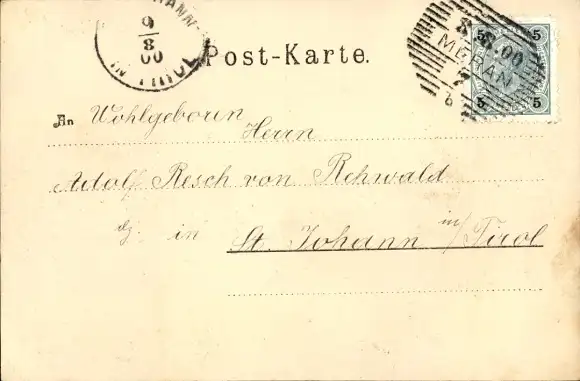 9
8
00
IN TIROL
Post-Karte.
8.8.00
MERAN
5 5
5 5
An Wohlgeboren
Herrn
Adolf Resch von Rehwald
dz in St. Johann in/Tirol